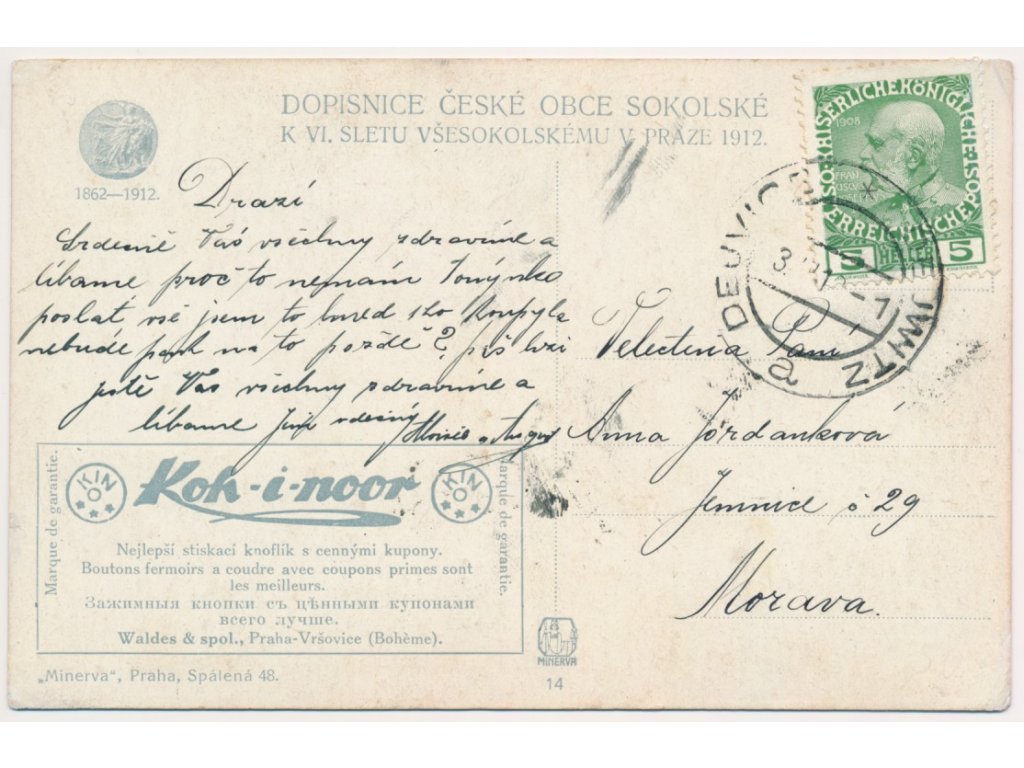 DOPISNICE ČESKÉ OBCE SOKOLSKÉ
K VI. SLETU VŠESOKOLSKÉMU V PRAZE 1912.
1862—1912.
Drazí
Srdečně Vás všechny zdravíme a
líbáme proč to nemám Tonynko
poslat vše jsem to hned koupyla
nebude pak na to pozdě? piš brzi
ještě Vás všechny zdravíme a
líbáme
Velectěná Paní
Anna Jordánková
Jemnice č 29
Morava.
ÖSTERREICHISCHE POST
KAISERLICHE KÖNIGLICHE
1908
5 HELLER 5
DEJVICE
a
Marque de garantie.
KIN
O
Koh-i-noor
KIN
O
Marque de garantie.
Nejlepší stiskací knoflík s cennými kupony.
Boutons fermoirs a coudre avec coupons primes sont
les meilleurs.
Зажимныя кнопки съ цѣнными купонами
всего лучше.
Waldes & spol., Praha-Vršovice (Bohème).
„Minerva", Praha, Spálená 48.
MINERVA
14